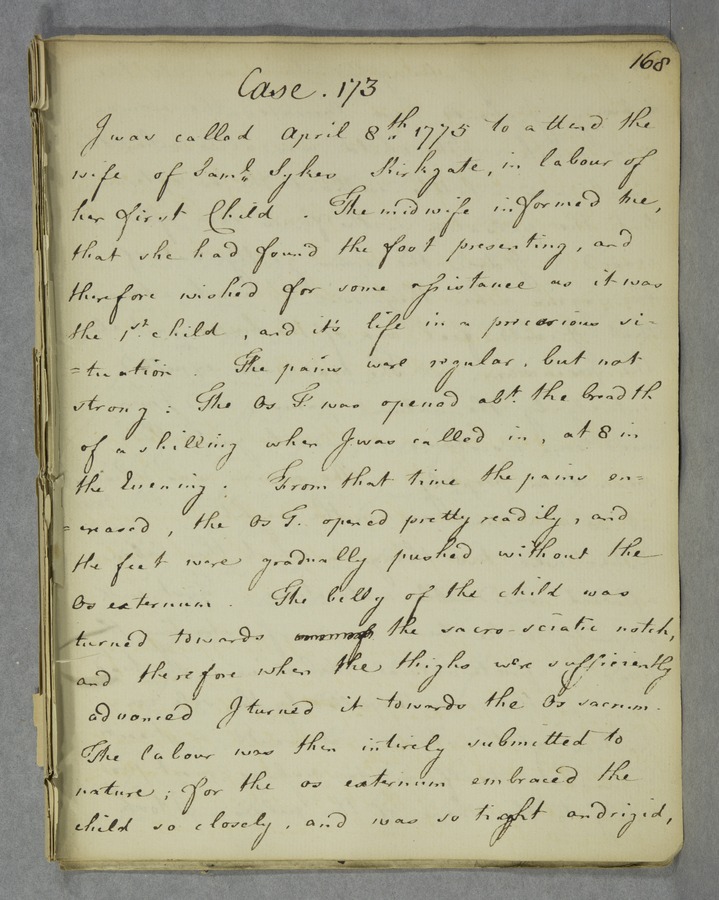 168
Case. 173
I was called April 8th 1775 to attend the
wife of Saml. Sykes Kirkgate, in labour of
her first Child. The midwife informed me,
that she had found the foot presenting, and
therefore wished for some assistance as it was
the 1st. child, and it's life in a precarious si-
=tuation. The pains were regular, but not
strong: The Os T. was opened abt. the breadth
of a shilling when I was called in, at 8 in
the Evening. From that time the pains en=
=creased, the Os T. opened pretty readily, and
the feet were gradually pushed without the
Os externum. The belly of the child was
turned towards the sacro-sciatic notch,
and therefore when the thighs were sufficiently
advanced I turned it towards the Os sacrum.
The labour was then intirely submitted to
nature; for the os externum embraced the
child so closely, and was so tight and rigid,